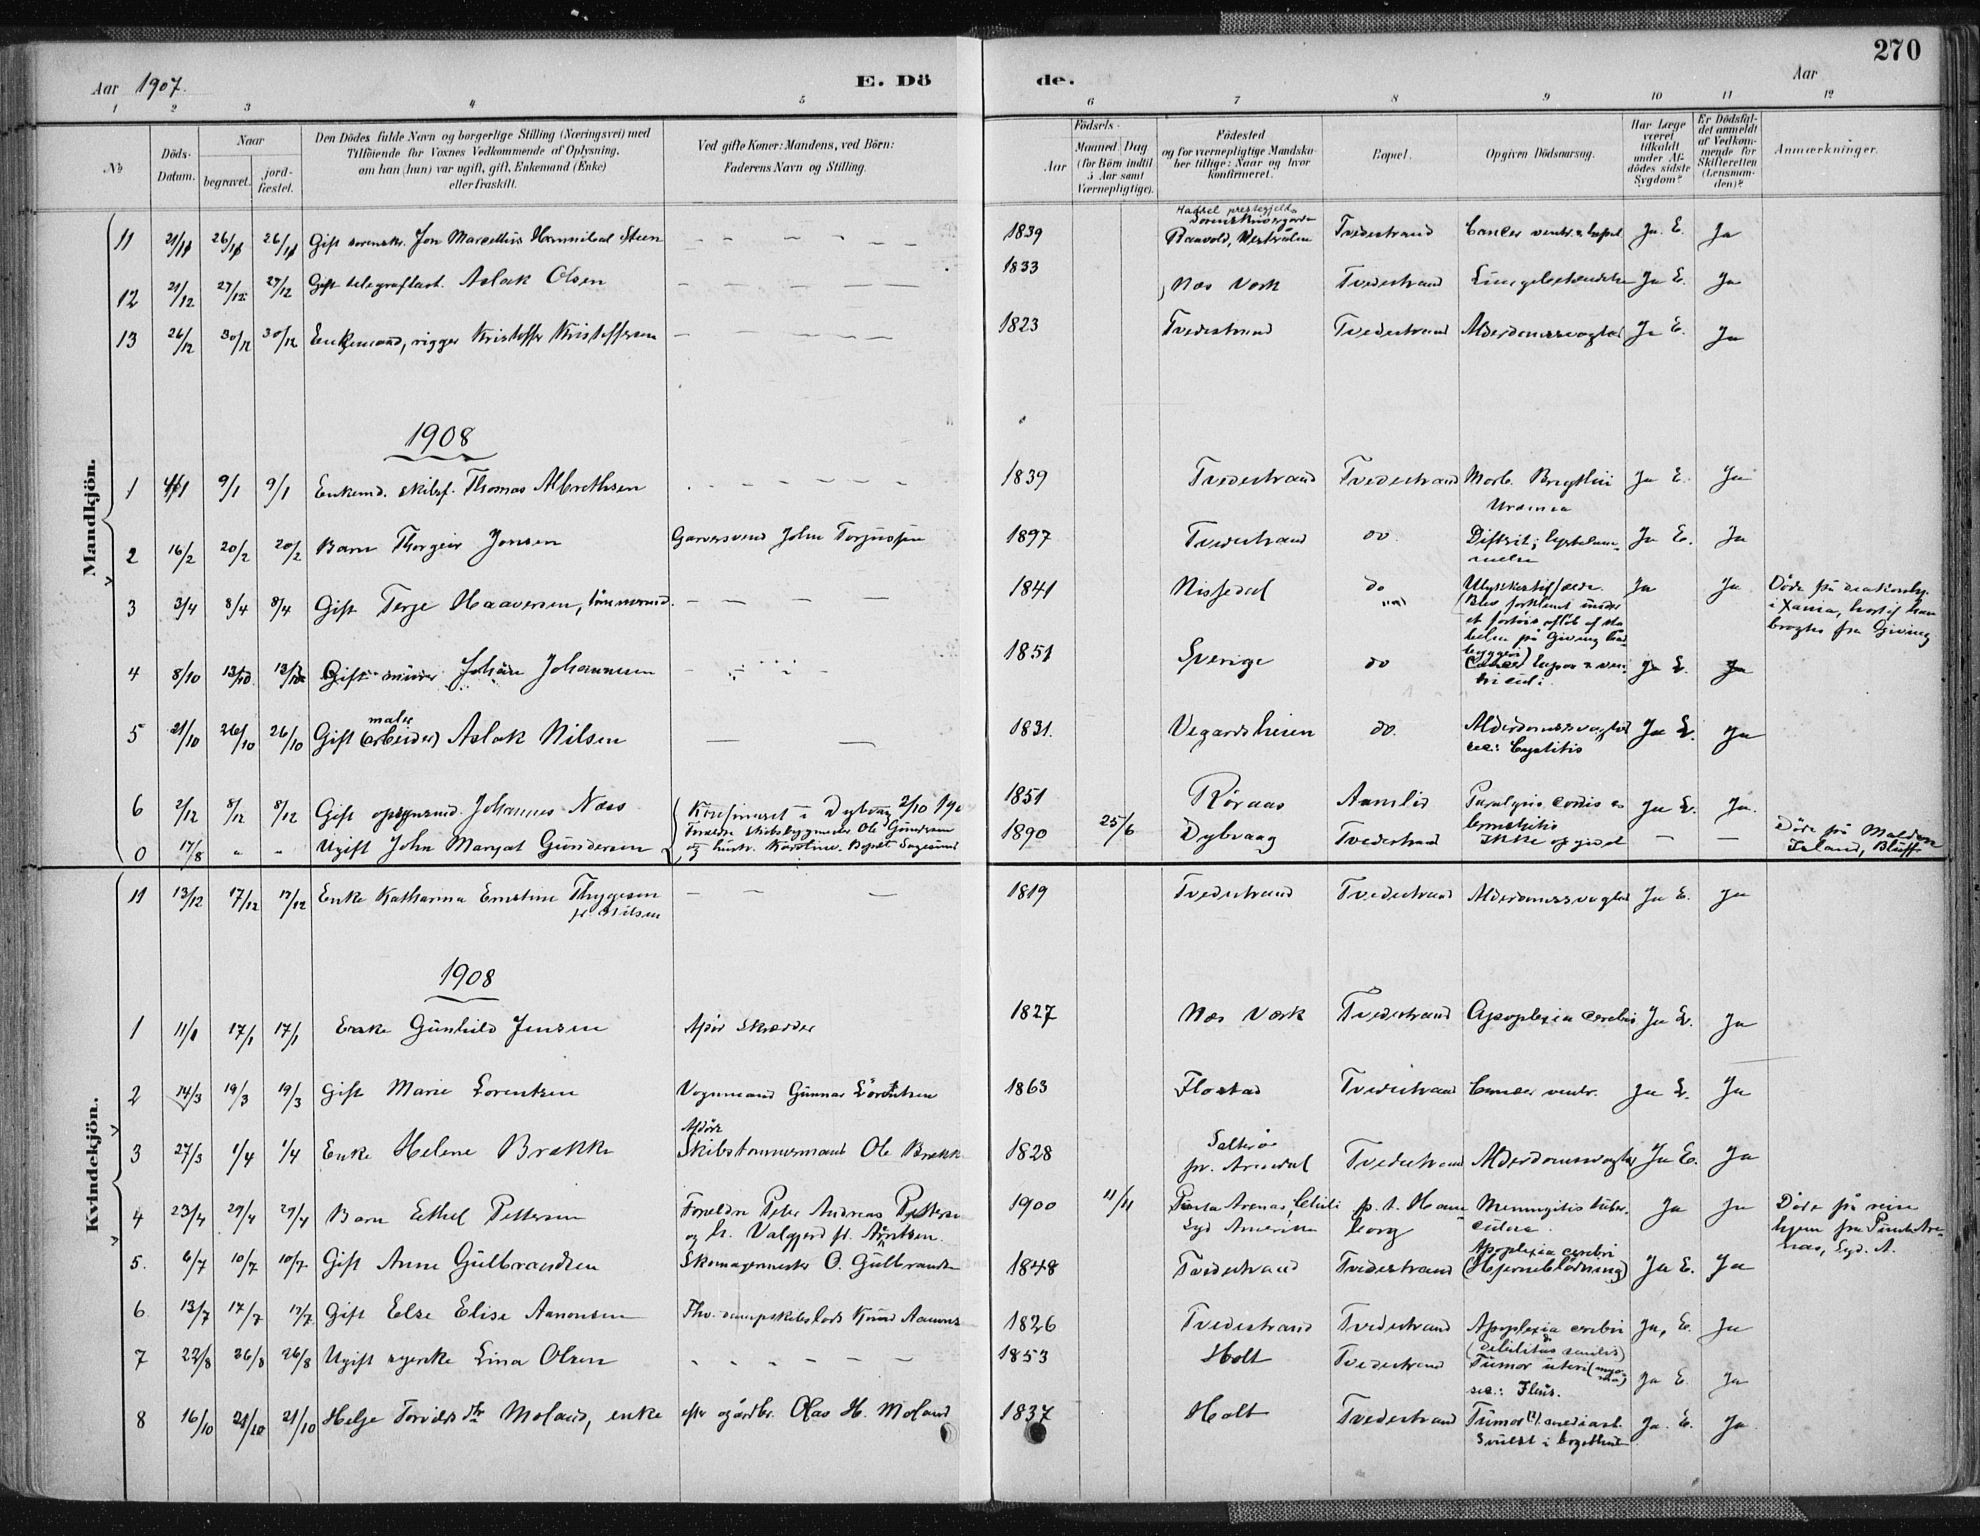 270
Aar 1907.
E. Dö de.
Aar
1 2 3 4 5 6 7 8 9 10 11 12
No
Döds-Datum.
Naar
begravet.
jord-fæstet.
Den Dödes fulde Navn og borgerlige Stilling (Næringsvei) med
Tilföiende for Voxnes Vedkommende af Oplysning,
om han (hun) var ugift, gift, Enkemand (Enke)
eller fraskilt.
Ved gifte Koner: Mandens, ved Börn:
Faderens Navn og Stilling.
Födsels-
Aar
Maaned Dag
(for Börn indtil
5 Aar samt
Værnepligtige).
Födested
og for værnepligtige Mandska-
ber tillige: Naar og hvor
konfirmeret.
Bopæl.
Opgiven Dödsaarsag.
Har Læge
været
tilkaldt
under Af-
dödes sidste
Sygdom?
Er Dödsfal-
det anmeldt
af Vedkom-
mende for
Skifteretten
(Lensman-
den)?
Anmærkninger.
Mandkjön.
11 21/11 26/11 26/11 Gift sorenskr. Jon Marcellius Hannibal Steen 1839 Hadsel prestegjeld, Sorenskrivergarden Vesterålen Tvedestrand Cancer ventr. & hepat. Ja E. Ja
12 21/12 27/12 27/12 Gift telegrafbest. Aslak Olsen 1833 Næs Værk Tvedestrand Lungebetændelse Ja E. Ja
13 26/12 30/12 30/12 Enkemand, rigger Kristoffer Kristoffersen 1823 Tvedestrand Tvedestrand Alderdomssvaghed Ja E. Ja
1908
1 4/1 9/1 9/1 Enkemd. skibsf. Thomas Albrethsen 1839 Tvedestrand Tvedestrand Morb. Brigthii Ja E. Ja
Uræmia
2 16/2 20/2 20/2 Barn Thorgeir Jonsen Garversvend John Torjussen 1897 Tvedestrand do. Difterit; Ja E. Ja
3 3/4 8/4 8/4 Gift Terje Haaversen, tömmermd. 1841 Nissedal do Ulykkestilfælde. Ja Ja Döde på
(Blev forklemt under
et fartöis aflöb af sta
belen på Giving båd
byggeri)
brogtes fra Giving
4 8/10 13/10 13/10 Gift murer Johan Johannesen 1851 Sverige do Cancer hepar & ven Ja E. Ja
triculi.
5 21/10 26/10 26/10 Gift maler (arbeider) Aslak Nilsen 1831. Vegardsheien do. Alderdomssvaghed Ja E. Ja
sec.: Cystitis
6 2/12 8/12 8/12 Gift opsynsmd. Johannes Næss 1851 Röraas Aamlid Paralysis cordis Ja E. Ja.
0 17/8 " " Ugift John Margat Gundersen Konfirmeret i Dybvaag 2/10 190
Foreldre skibsbygmester Ole Gundersen
og hustr. Karoline. Bopæl Sagesund
1890 25/6 Dybvaag Tvedestrand Ikke opgivet — — Döde på Malden
Island, Bluff
Kvindekjön.
11 13/12 17/12 17/12 Enke Katharina Ernstine Thygesen 1819 Tvedestrand Tvedestrand Alderdomssvaghed Ja E. Ja
f. Nilsen
1908
1 11/1 17/1 17/1 Enke Gunhild Jensen Skrædder 1827 Næs Værk Tvedestrand Apoplexia cerebri Ja E. Ja
2 14/3 19/3 19/3 Gift Marie Lorentsen Vognmand Gunnar Lorentsen 1863 Flostad Tvedestrand Cancer ventr. Ja E. Ja
3 27/3 1/4 1/4 Enke Helene Brække Afdöde
Skibstömmermand Ole Brække 1828 Salteröe
pr. Arendal Tvedestrand Alderdomssvaghed Ja E. Ja
4 23/4 29/4 29/4 Barn Ethel Pettersen Foreldre Peter Andreas Pettersen 1900 11/11 Punta Arenas, Chili p. t. Ham Meningitis tuber- Ja Ja Döde på reise
og h. Valgjerd f. Arntsen. Syd Amerika borg culosa. hjem fra Punta Are-
nas, Syd. A.
5. 6/7 10/7 10/7 Gift Anne Gulbrandsen Skomagermester O. Gulbrandsen 1848 Tvedestrand Tvedestrand Apoplexia cerebri
(Hjerneblödning) Ja E. Ja
6 13/7 17/7 17/7 Gift Else Elise Aanonsen Fhv. dampskibslods Knud Aanons 1826 Tvedestrand Tvedestrand Apoplexia cerebri Ja, E. Ja
(debilitas senilis)
7 22/8 26/8 26/8 Ugift syerske Lina Olsen 1853 Holt Tvedestrand Tumor uteri (myoma) Ja E. Ja
sec.: Ileus.
8 16/10 21/10 21/10 Helje Torvilds dtr Moland, enke efter gårdbr. Olav H. Moland 1837 Holt Tvedestrand Tumor (?) mediast. Ja. E. Ja
Svulst i brysthulen